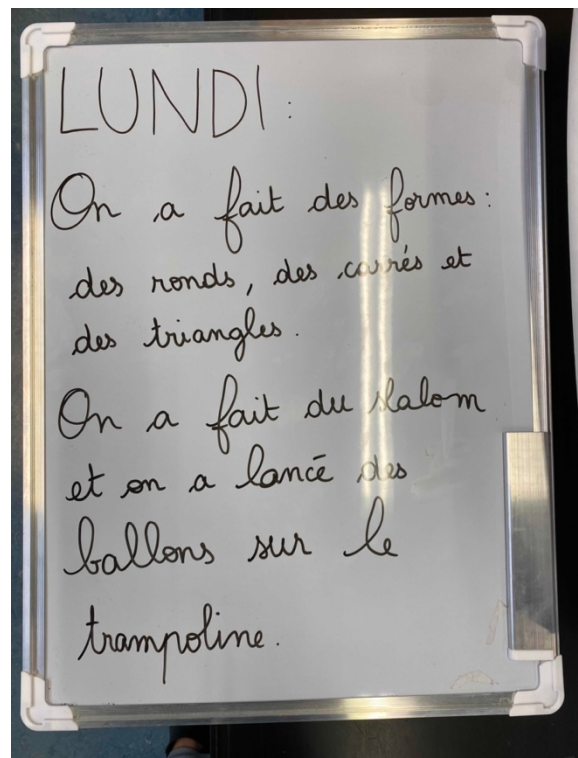 LUNDI :
On a fait des formes :
des ronds, des carrés et
des triangles.
On a fait du slalom
et on a lancé des
ballons sur le
trampoline.